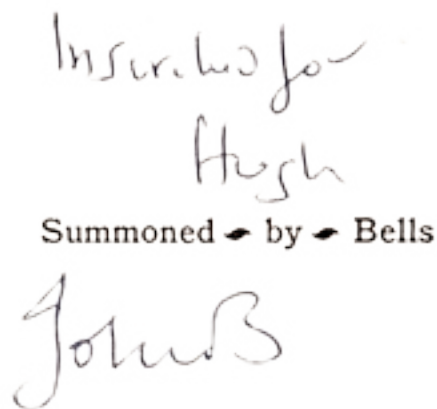 Inscribed for
Hugh
Summoned by Bells
John B